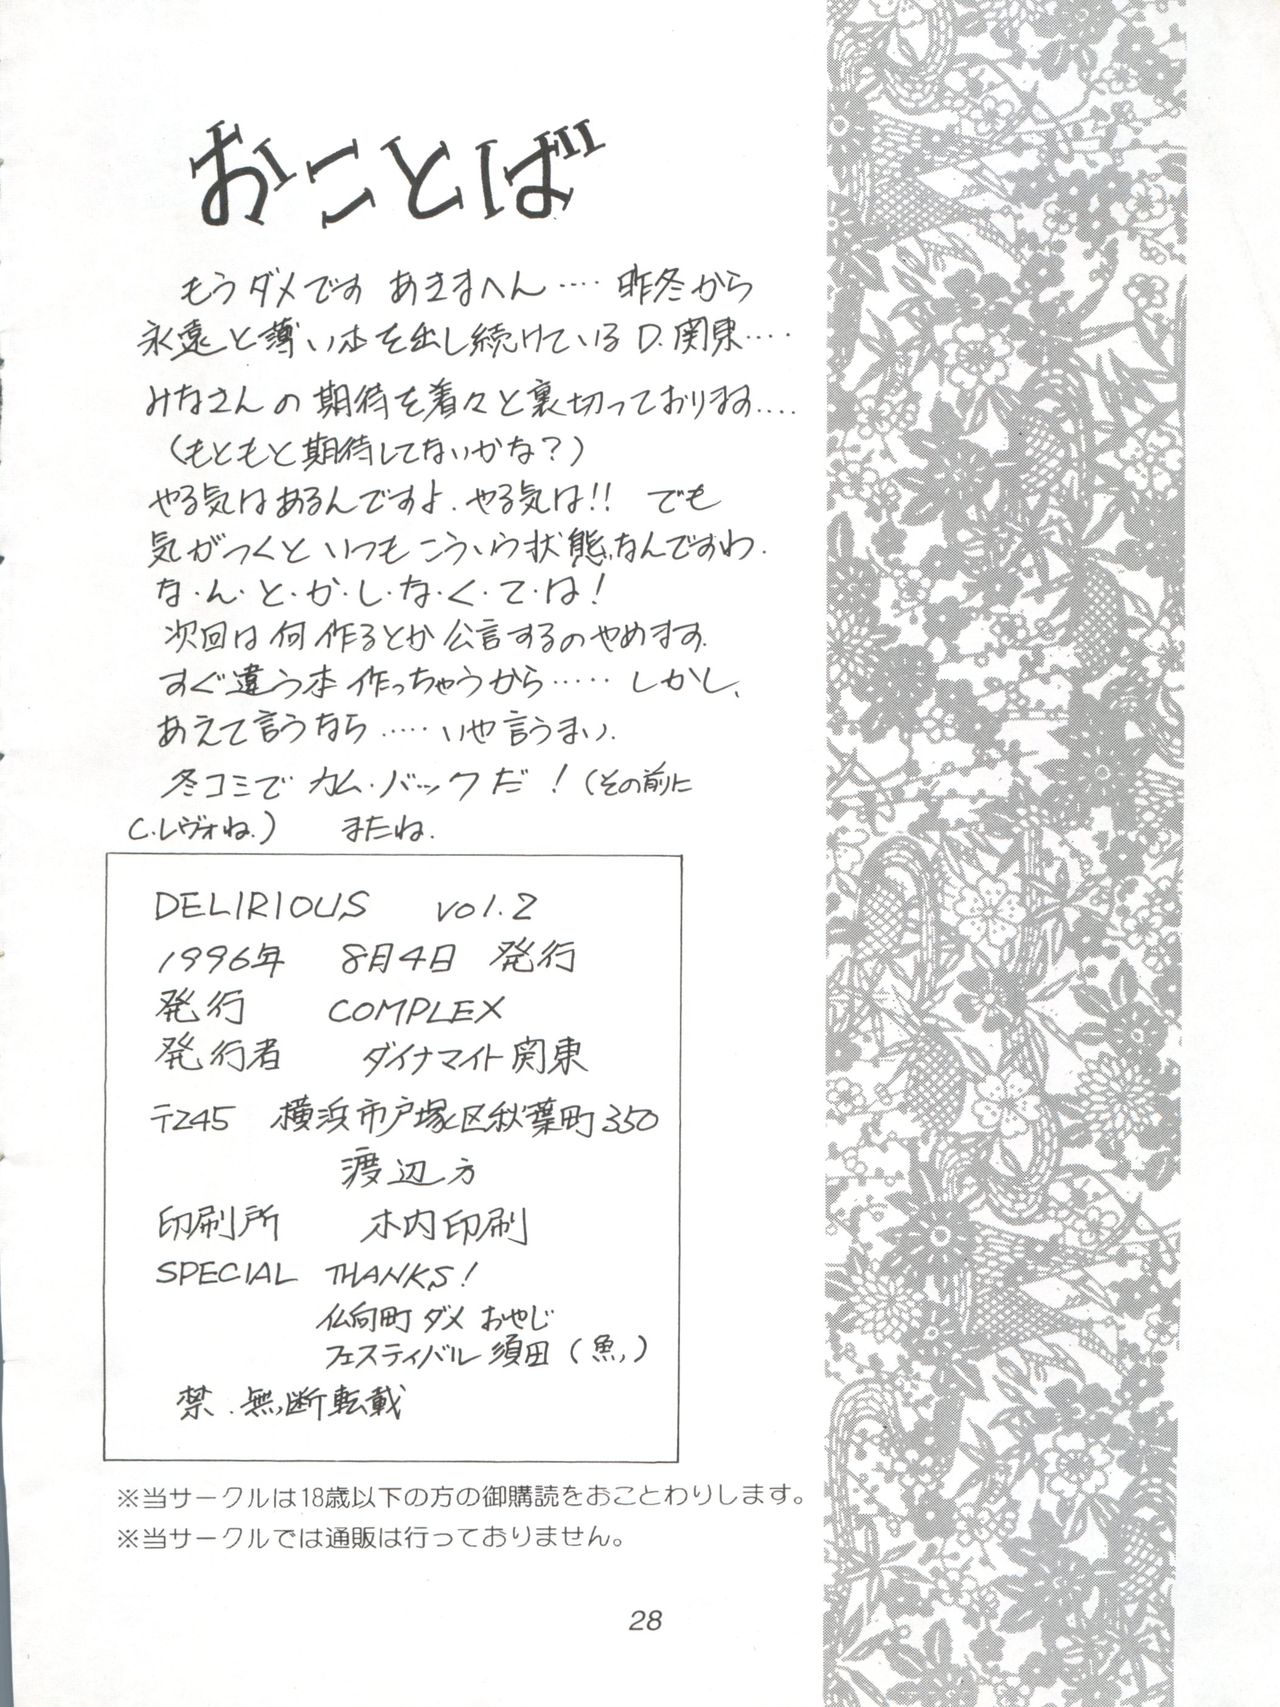 おことば
もうダメです あきまへん‥‥ 昨冬から
永遠と薄い本を出し続けているD.関東‥‥
みなさんの期待を着々と裏切っております‥‥
（もともと期待してないかな？）
やる気はあるんですよ．やる気は!! でも
気がつくといつもこういう状態なんですわ．
な・ん・と・か・し・な・く・て・は！
次回は何作るとか公言するのやめます．
すぐ違う本作っちゃうから‥‥‥ しかし、
あえて言うなら‥‥‥いや言うまい．
冬コミでカム・バックだ！（その前に
C.レヴォね．） またね．
DELIRIOUS vol.2
1996年 8月4日 発行
発行 COMPLEX
発行者 ダイナマイト関東
〒245 横浜市戸塚区秋葉町350
渡辺方
印刷所 木内印刷
SPECIAL THANKS!
仏向町ダメおやじ
フェスティバル須田（魚）
禁．無断転載
※当サークルは18歳以下の方の御購読をおことわりします。
※当サークルでは通販は行っておりません。
28